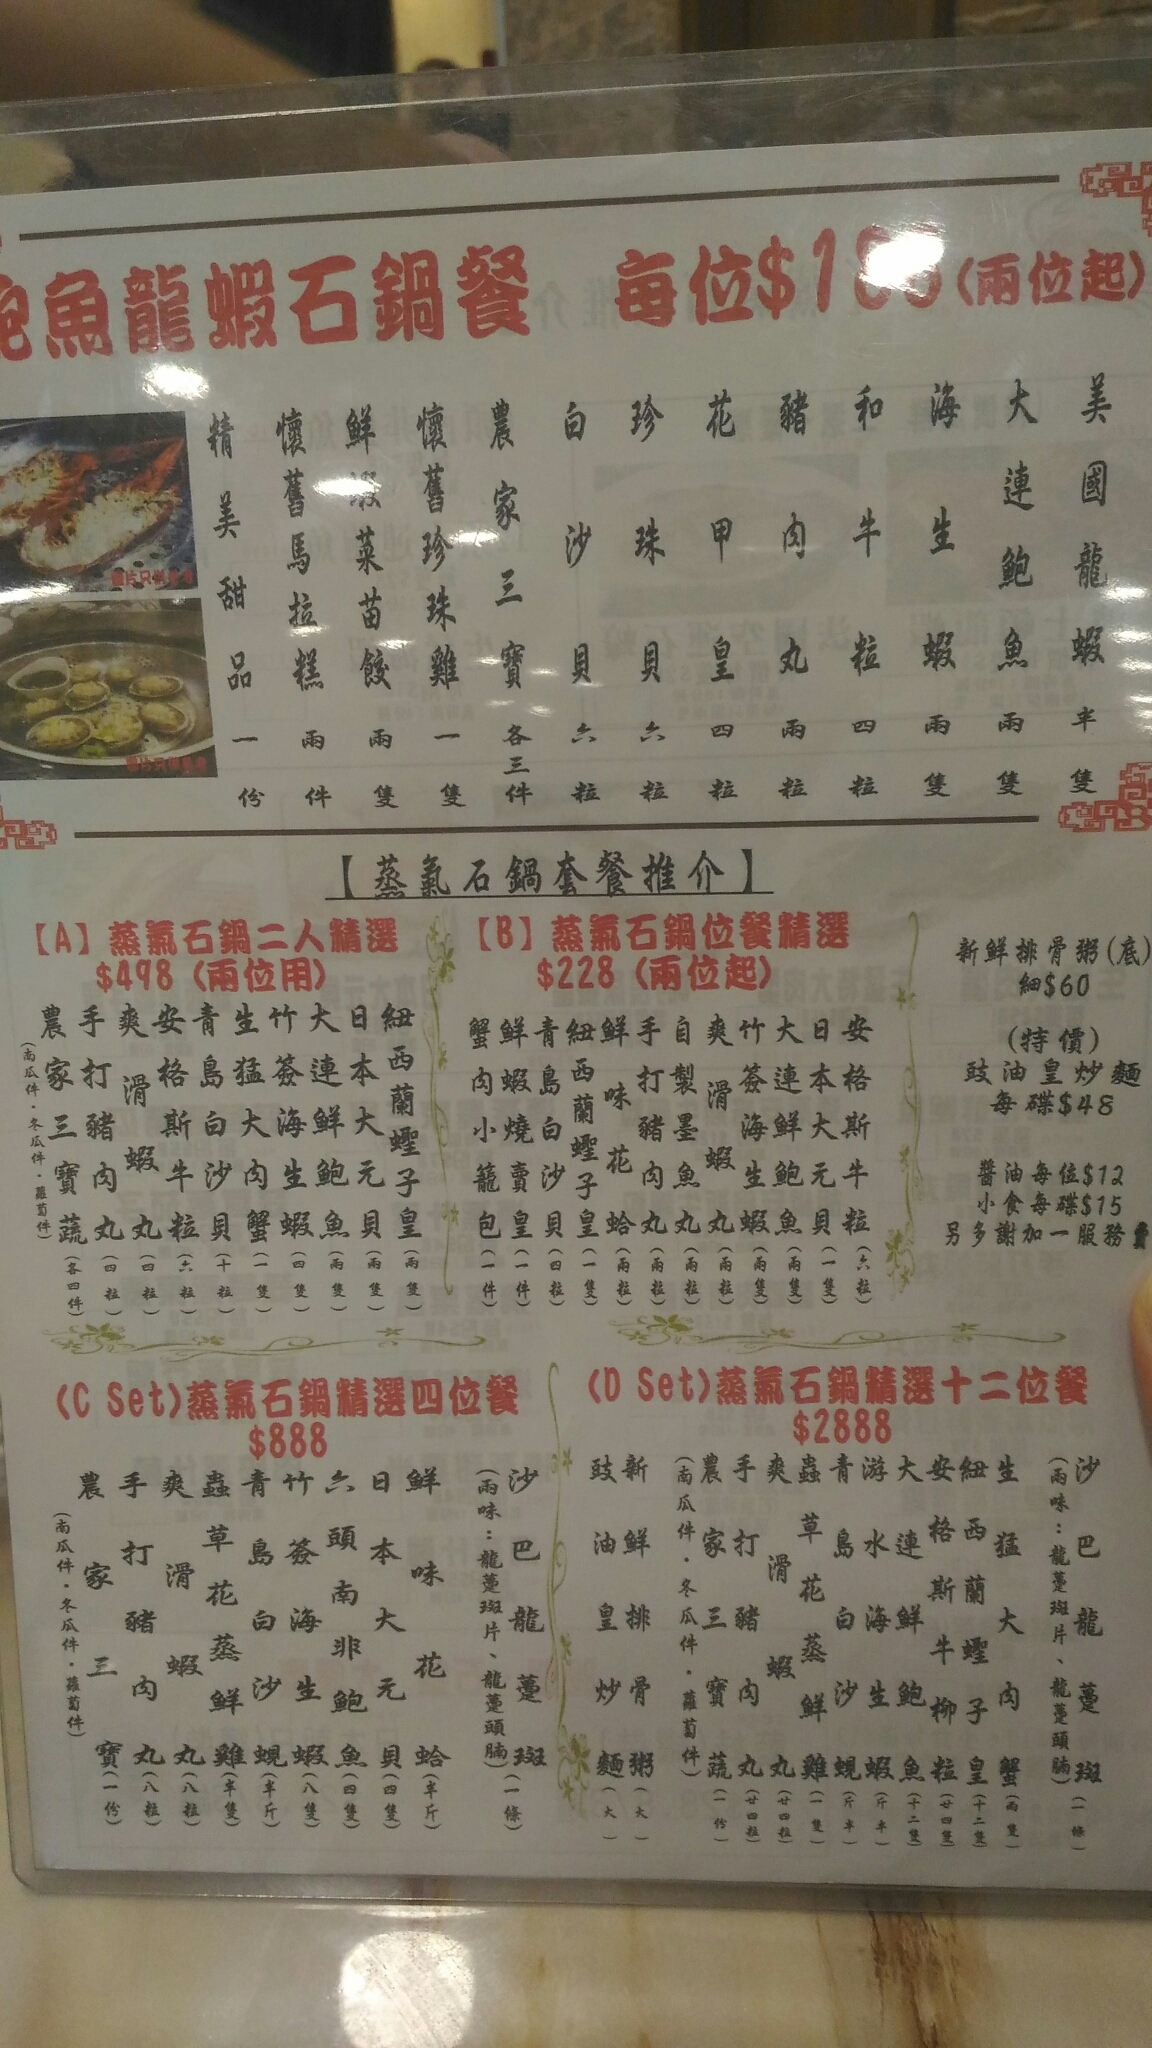 鮑魚龍蝦石鍋餐 每位$1 (兩位起)
美國龍蝦半隻
大連鮑魚兩隻
海生蝦兩隻
和牛粒四粒
豬肉丸兩粒
花甲皇四粒
珍珠貝六粒
白沙貝六粒
農家三寶各三件
懷舊珍珠雞一隻
鮮蝦菜苗餃兩隻
懷舊馬拉糕兩件
精美甜品一份
圖片只供參考
圖片只供參考
【蒸氣石鍋套餐推介】
【A】蒸氣石鍋二人精選
$498 (兩位用)
紐西蘭蟶子皇(兩隻)
日本大元貝(兩隻)
大連鮮鮑魚(兩隻)
竹簽海生蝦(四隻)
生猛大肉蟹(一隻)
青島白沙貝(十粒)
安格斯牛粒(六粒)
爽滑蝦丸(四粒)
手打豬肉丸(四粒)
農家三寶蔬(各四件)
(南瓜件·冬瓜件·蘿蔔件)
【B】蒸氣石鍋位餐精選
$228 (兩位起)
安格斯牛粒(六粒)
日本大元貝(一隻)
大連鮮鮑魚(兩隻)
竹簽海生蝦(兩隻)
爽滑蝦丸(兩粒)
自製墨魚丸(兩粒)
手打豬肉丸(兩粒)
鮮味花蛤(兩粒)
紐西蘭蟶子皇(一隻)
青島白沙貝(四粒)
鮮蝦燒賣皇(一件)
蟹肉小籠包(一件)
新鮮排骨粥(底)
細$60
(特價)
豉油皇炒麵
每碟$48
醬油每位$12
小食每碟$15
另多謝加一服務
(C Set)蒸氣石鍋精選四位餐
$888
沙巴龍躉斑(一條)
(兩味：龍躉斑片、龍躉頭腩)
鮮味花蛤(半斤)
日本大元貝(四隻)
六頭南非鮑魚(四隻)
竹簽海生蝦(八隻)
青島白沙蜆(半斤)
蟲草花蒸鮮雞(半隻)
爽滑蝦丸(八粒)
手打豬肉丸(八粒)
農家三寶(一份)
(南瓜件·冬瓜件·蘿蔔件)
(D Set)蒸氣石鍋精選十二位餐
$2888
沙巴龍躉斑(一條)
(兩味：龍躉斑片、龍躉頭腩)
生猛大肉蟹(兩隻)
紐西蘭蟶子皇(十二隻)
安格斯牛柳粒(廿四隻)
大連鮮鮑魚(十二隻)
游水海生蝦(斤半)
青島白沙蜆(斤半)
蟲草花蒸鮮雞(一隻)
爽滑蝦丸(廿四粒)
手打豬肉丸(廿四粒)
農家三寶蔬(一份)
(南瓜件·冬瓜件·蘿蔔件)
新鮮排骨粥(大)
豉油皇炒麵(大)